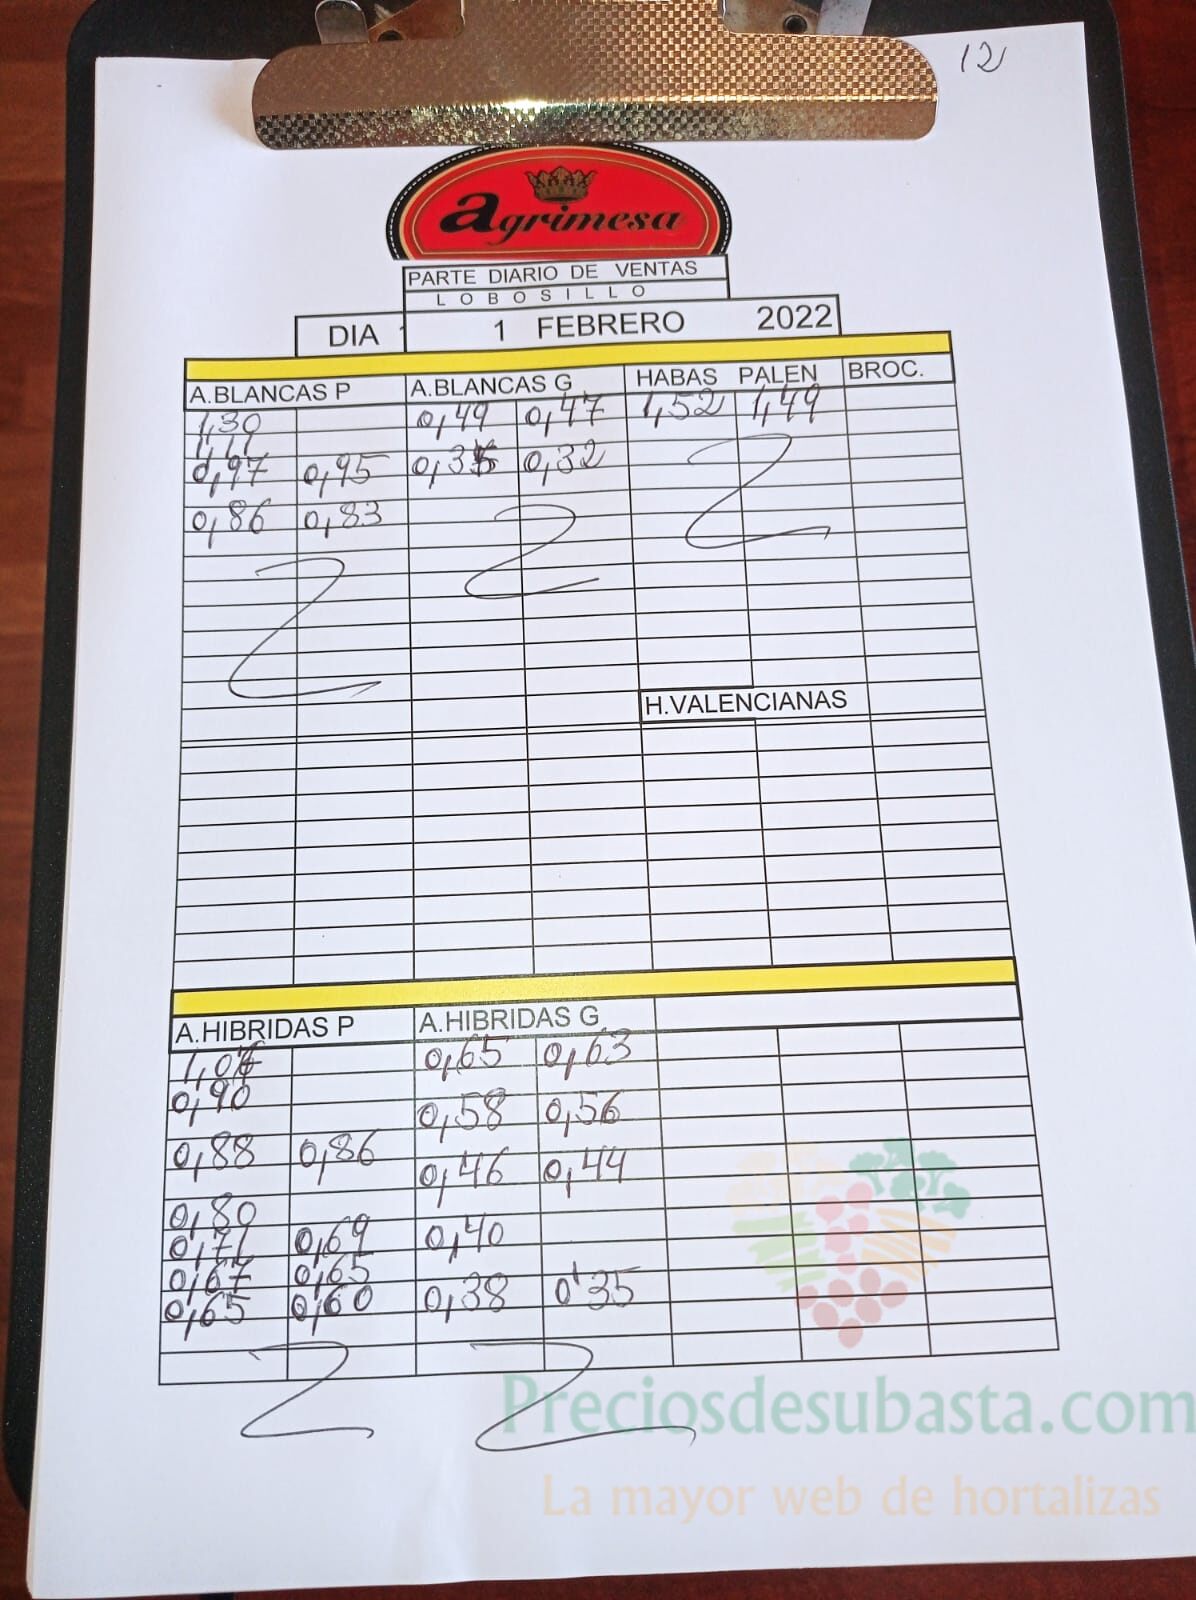 12
agrimesa
PARTE DIARIO DE VENTAS
LOBOSILLO
DIA 1 FEBRERO 2022
A.BLANCAS P A.BLANCAS G HABAS PALEN BROC.
1,30 0,49 0,47 1,52 1,49
1,11
0,97 0,95 0,35 0,32
0,86 0,83
H.VALENCIANAS
A.HIBRIDAS P A.HIBRIDAS G
0,65 0,63
0,90
0,58 0,56
0,88 0,86 0,46 0,44
0,80
0,71 0,69 0,40
0,67 0,65
0,65 0,60 0,38 0'35
Preciosdesubasta.com
La mayor web de hortalizas